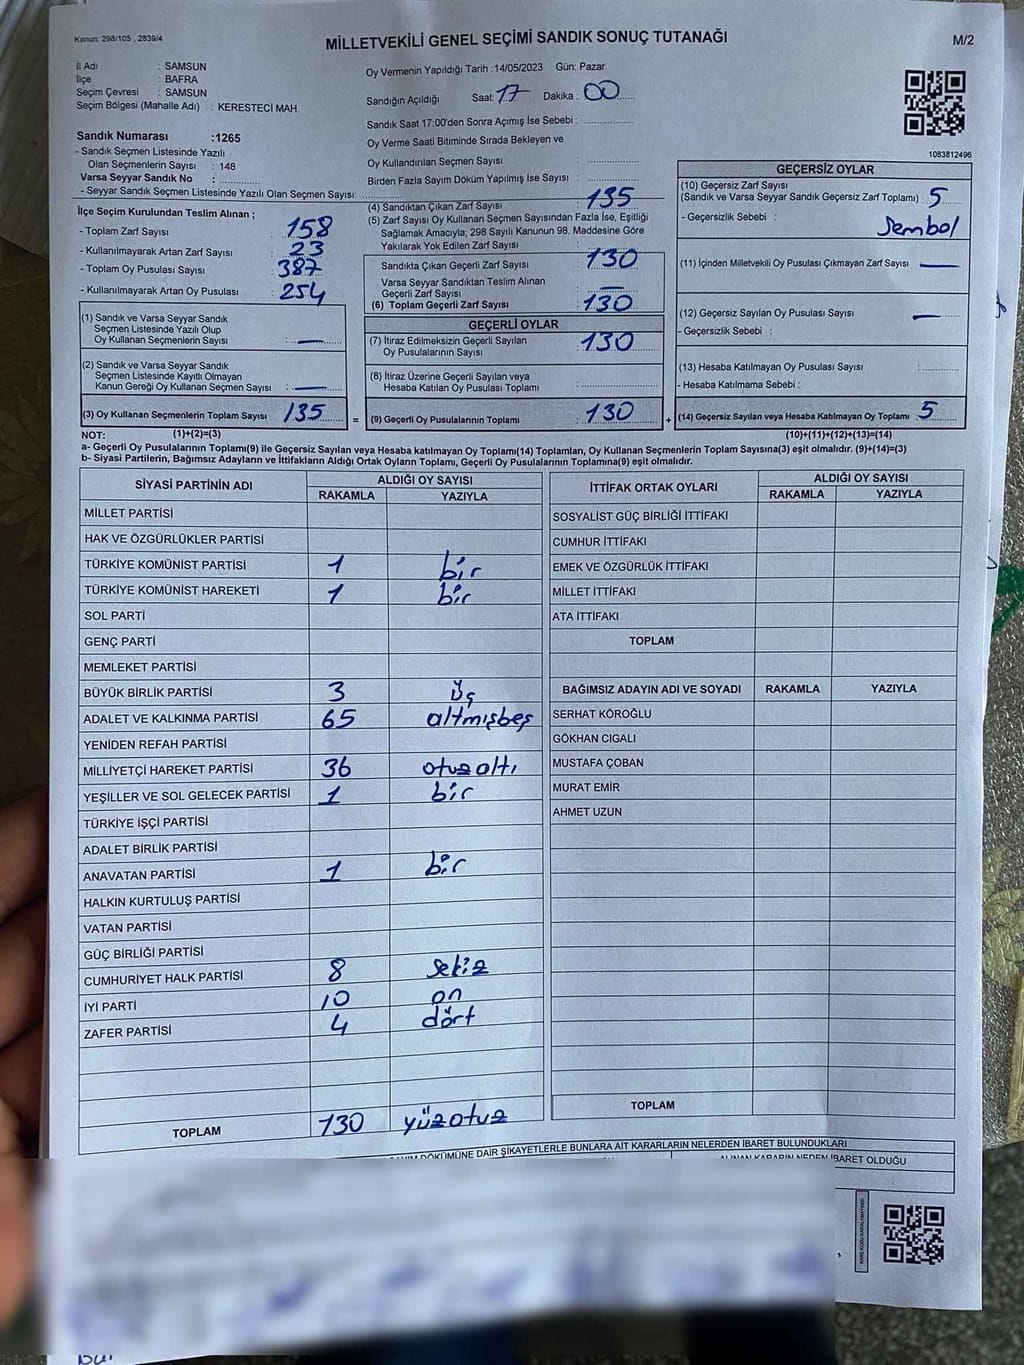 Kanun: 298/105 , 2839/4
MİLLETVEKİLİ GENEL SEÇİMİ SANDIK SONUÇ TUTANAĞI
M/2
İl Adı : SAMSUN
İlçe : BAFRA
Seçim Çevresi : SAMSUN
Seçim Bölgesi (Mahalle Adı) : KERESTECİ MAH.
Sandık Numarası :1265
- Sandık Seçmen Listesinde Yazılı
Olan Seçmenlerin Sayısı : 148
Varsa Seyyar Sandık No :
- Seyyar Sandık Seçmen Listesinde Yazılı Olan Seçmen Sayısı:
Oy Vermenin Yapıldığı Tarih :14/05/2023 Gün: Pazar
Sandığın Açıldığı Saat: 17 Dakika : 00
Sandık Saat 17:00'den Sonra Açımış İse Sebebi :
Oy Verme Saati Bitiminde Sırada Bekleyen ve
Oy Kullandırılan Seçmen Sayısı :
Birden Fazla Sayım Döküm Yapılmış İse Sayısı :
1083812496
İlçe Seçim Kurulundan Teslim Alınan ;
- Toplam Zarf Sayısı : 158
- Kullanılmayarak Artan Zarf Sayısı : 23
- Toplam Oy Pusulası Sayısı : 387
- Kullanılmayarak Artan Oy Pusulası : 254
(1) Sandık ve Varsa Seyyar Sandık
Seçmen Listesinde Yazılı Olup
Oy Kullanan Seçmenlerin Sayısı : —
(2) Sandık ve Varsa Seyyar Sandık
Seçmen Listesinde Kayıtlı Olmayan
Kanun Gereği Oy Kullanan Seçmen Sayısı : —
(3) Oy Kullanan Seçmenlerin Toplam Sayısı : 135
(1)+(2)=(3)
(4) Sandıktan Çıkan Zarf Sayısı : 135
(5) Zarf Sayısı Oy Kullanan Seçmen Sayısından Fazla İse, Eşitliği
Sağlamak Amacıyla; 298 Sayılı Kanunun 98. Maddesine Göre
Yakılarak Yok Edilen Zarf Sayısı :
Sandıkta Çıkan Geçerli Zarf Sayısı : 130
Varsa Seyyar Sandıktan Teslim Alınan
Geçerli Zarf Sayısı : —
(6) Toplam Geçerli Zarf Sayısı : 130
GEÇERLİ OYLAR
(7) İtiraz Edilmeksizin Geçerli Sayılan
Oy Pusulalarının Sayısı : 130
(8) İtiraz Üzerine Geçerli Sayılan veya
Hesaba Katılan Oy Pusulası Toplamı :
= (9) Geçerli Oy Pusulalarının Toplamı : 130 +
GEÇERSİZ OYLAR
(10) Geçersiz Zarf Sayısı
(Sandık ve Varsa Seyyar Sandık Geçersiz Zarf Toplamı) : 5
- Geçersizlik Sebebi : Sembol
(11) İçinden Milletvekili Oy Pusulası Çıkmayan Zarf Sayısı : —
(12) Geçersiz Sayılan Oy Pusulası Sayısı : —
- Geçersizlik Sebebi :
(13) Hesaba Katılmayan Oy Pusulası Sayısı :
- Hesaba Katılmama Sebebi :
(14) Geçersiz Sayılan veya Hesaba Katılmayan Oy Toplamı : 5
(10)+(11)+(12)+(13)=(14)
NOT:
a- Geçerli Oy Pusulalarının Toplamı(9) ile Geçersiz Sayılan veya Hesaba katılmayan Oy Toplamı(14) Toplamları, Oy Kullanan Seçmenlerin Toplam Sayısına(3) eşit olmalıdır. (9)+(14)=(3)
b- Siyasi Partilerin, Bağımsız Adayların ve İttifakların Aldığı Ortak Oyların Toplamı, Geçerli Oy Pusulalarının Toplamına(9) eşit olmalıdır.
SİYASİ PARTİNİN ADI ALDIĞI OY SAYISI
RAKAMLA YAZIYLA
MİLLET PARTİSİ
HAK VE ÖZGÜRLÜKLER PARTİSİ
TÜRKİYE KOMÜNİST PARTİSİ 1 bir
TÜRKİYE KOMÜNİST HAREKETİ 1 bir
SOL PARTİ
GENÇ PARTİ
MEMLEKET PARTİSİ
BÜYÜK BİRLİK PARTİSİ 3 üç
ADALET VE KALKINMA PARTİSİ 65 altmışbeş
YENİDEN REFAH PARTİSİ
MİLLİYETÇİ HAREKET PARTİSİ 36 otuzaltı
YEŞİLLER VE SOL GELECEK PARTİSİ 1 bir
TÜRKİYE İŞÇİ PARTİSİ
ADALET BİRLİK PARTİSİ
ANAVATAN PARTİSİ 1 bir
HALKIN KURTULUŞ PARTİSİ
VATAN PARTİSİ
GÜÇ BİRLİĞİ PARTİSİ
CUMHURİYET HALK PARTİSİ 8 sekiz
İYİ PARTİ 10 on
ZAFER PARTİSİ 4 dört
TOPLAM 130 yüzotuz
İTTİFAK ORTAK OYLARI ALDIĞI OY SAYISI
RAKAMLA YAZIYLA
SOSYALİST GÜÇ BİRLİĞİ İTTİFAKI
CUMHUR İTTİFAKI
EMEK VE ÖZGÜRLÜK İTTİFAKI
MİLLET İTTİFAKI
ATA İTTİFAKI
TOPLAM
BAĞIMSIZ ADAYIN ADI VE SOYADI RAKAMLA YAZIYLA
SERHAT KÖROĞLU
GÖKHAN CIGALI
MUSTAFA ÇOBAN
MURAT EMİR
AHMET UZUN
TOPLAM
DÖKÜMÜNE DAİR ŞİKAYETLERLE BUNLARA AİT KARARLARIN NELERDEN İBARET BULUNDUKLARI
ALINAN KARARIN NEDEN İBARET OLDUĞU